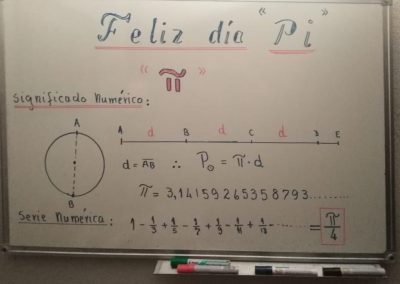 Feliz día "Pi"
"π"
Significado Numérico:
A d B d C d D E
A
d = AB ∴ P⊙ = π·d
B
π = 3,14159265358793........
Serie Numérica: 1 - 1/3 + 1/5 - 1/7 + 1/9 - 1/11 + 1/13 ........ = π/4